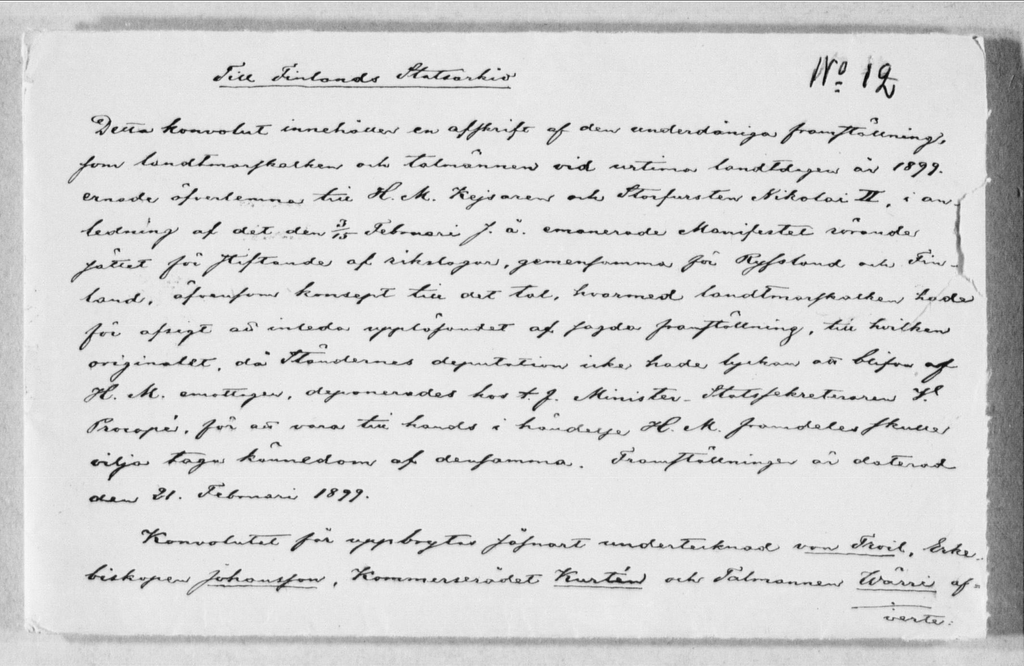 Till Finlands Statsarkiv
No 12
Detta konvolut innehåller en afskrift af den underdåniga framställning,
som landtmarskalken och talmännen vid urtima landtdagen år 1899
ernade öfverlemna till H. M. Kejsaren och Storfursten Nikolai II, i an-
ledning af det den 3/15 Februari s. å. emanerade Manifestet rörande
sättet för stiftande af rikslagar, gemensamma för Ryssland och Fin-
land, äfvensom konsept till det tal, hvarmed landtmarskalken hade
för afsigt att inleda uppläsandet af sagda framställning, till hvilken
originalet, då Ständernes deputation icke hade lyckan att blifva af
H. M. emottagen, deponerades hos t. f. Minister-Statssekreteraren
Procopé, för att vara till hands i händelse H. M. framdeles skulle
vilja taga kännedom af densamma. Framställningen är daterad
den 21. Februari 1899.
Konvolutet får uppbrytas såsnart undertecknad von Troil, Erke-
biskopen Johansson, Kommerserådet Kurtén och Talmannen Wärri af-
verte: